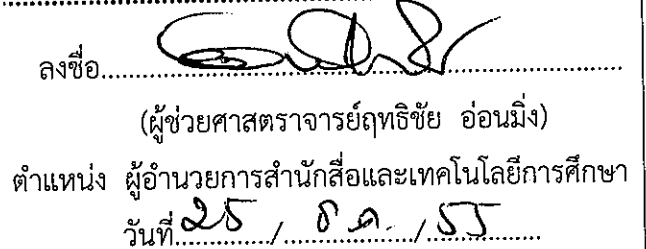 ลงชื่อ
(ผู้ช่วยศาสตราจารย์ฤทธิชัย อ่อนมิ่ง)
ตำแหน่ง ผู้อำนวยการสำนักสื่อและเทคโนโลยีการศึกษา
วันที่ 25 / ธ.ค. / 55